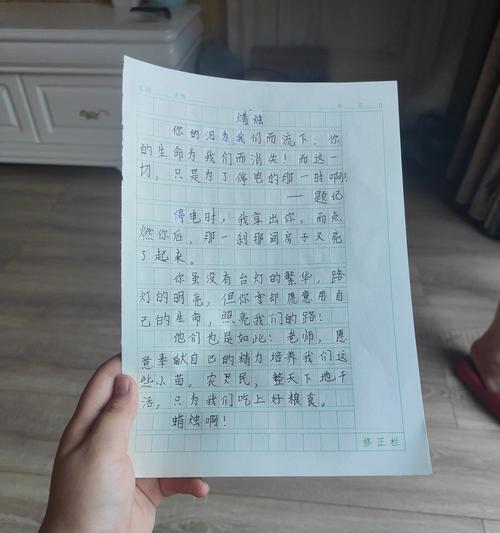 蜡烛
你的泪为我们而流下；你
的生命为我们而消失！而这一
切，只是为了停电的那一时啊！
——题记
停电时，我拿出你，而点
燃你后，那一刹那间房子又亮
了起来。
你虽没有台灯的繁华，路
灯的明亮，但你率却愿意用自
己的生命，照亮我们的路！
他们也是如此：老师，愿
意奉献自己的精力培养我们这
些小苗。农民，整天下地干
活，只为我们吃上好粮食。
蜡烛啊！
修正栏